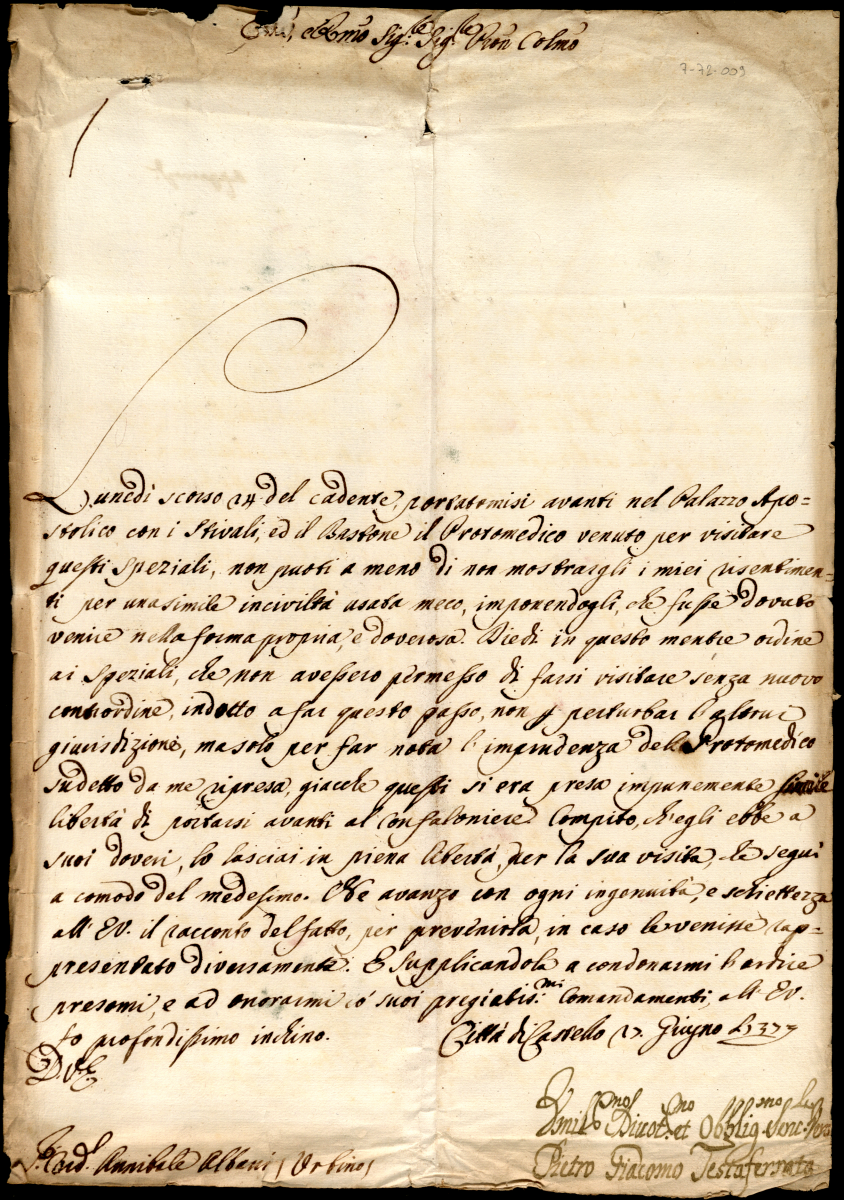 Em̃o, e Rmo̅ Sig.re Sig.re Pron Colmo
7-72-009
Lunedì scorso 14. del cadente, portatomisi avanti nel Palazzo Apo=
stolico con i Stivali, ed il Bastone il Protomedico venuto per visitare
questi speziali, non puoti a meno di non mostrargli i miei risentimen=
ti per una simile inciviltà usata meco, imponendogli, che fusse dovuto
venire nella forma propria, e doverosa. Diedi in questo mentre ordine
ai speziali, che non avessero permesso di farsi visitare senza nuovo
contrordine, indotto a far questo passo, non p perturbar l'altrui
giurisdizione, ma solo per far nota l'imprudenza del Protomedico
sudetto da me ripresa, giacche questi si era presa impunemente simile
libertà di portarsi avanti al Confaloniere. Compito, ch'egli ebbe a
suoi doveri, lo lasciai in piena libertà, per la sua visita, che seguì
a comodo del medesimo. Che avanzo con ogni ingenuità, e schiettezza
all' EV. il racconto del fatto, per prevenirla, in caso le venisse rap=
presentato diversamente. E supplicandola a condonarmi l'ardire
presomi, e ad onorarmi co' suoi pregiatis.mi Comandamenti, all' EV.
fo profondissimo inchino. Città di Castello 17. Giugno 1737
D.V.E.
Umil.mo Divot.mo et Obblig.mo Serv.re
Pietro Giacomo Testaferrata
Card.l Annibale Albani / Urbino /